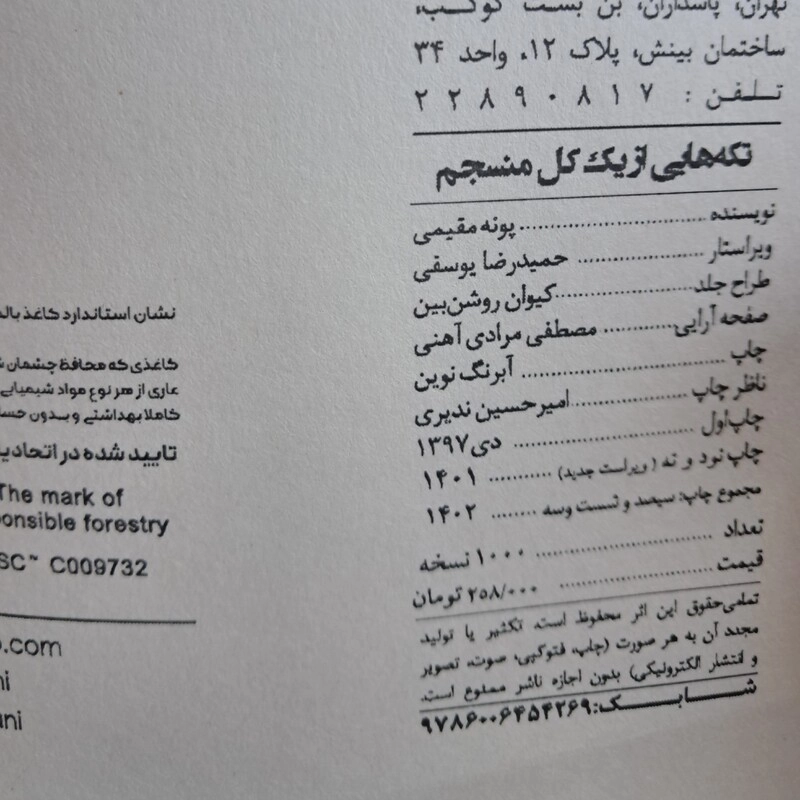 تهران، پاسداران، بن بست کوکب،
ساختمان بینش، پلاک ۱۲، واحد ۳۴
تلفن: ۲۲۸۹۰۸۱۷
تکه‌هایی از یک کل منسجم
نویسنده .......... پونه مقیمی
ویراستار .......... حمیدرضا یوسفی
طراح جلد .......... کیوان روشن‌بین
صفحه آرایی .......... مصطفی مرادی آهنی
چاپ .......... آبرنگ نوین
ناظر چاپ .......... امیرحسین ندیری
چاپ اول .......... دی ۱۳۹۷
چاپ نود و نه (ویراست جدید) .......... ۱۴۰۱
مجموع چاپ: سیصد و شست و سه .......... ۱۴۰۲
تعداد .......... ۱۰۰۰ نسخه
قیمت .......... ۲۵۸/۰۰۰ تومان
تمامی‌حقوق این اثر محفوظ است. تکثیر یا تولید
مجدد آن به هر صورت (چاپ، فتوکپی، صوت، تصویر
و انتشار الکترونیکی) بدون اجازه ناشر ممنوع است.
شابک: ۹۷۸۶۰۰۶۴۵۴۲۶۹
نشان استاندارد کاغذ
کاغذی که محافظ چشمان
عاری از هر نوع مواد شیمیایی
کاملا بهداشتی و بدون
تایید شده در
The mark of
onsible forestry
SC™ C009732
.com